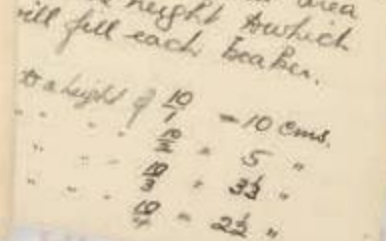 area
height to which
will fill each beaker.
to a height of 10/1 = 10 cms.
" " " " 10/2 = 5 "
" " " " 10/3 " 3⅓ "
" " " " 10/4 = 2½ "